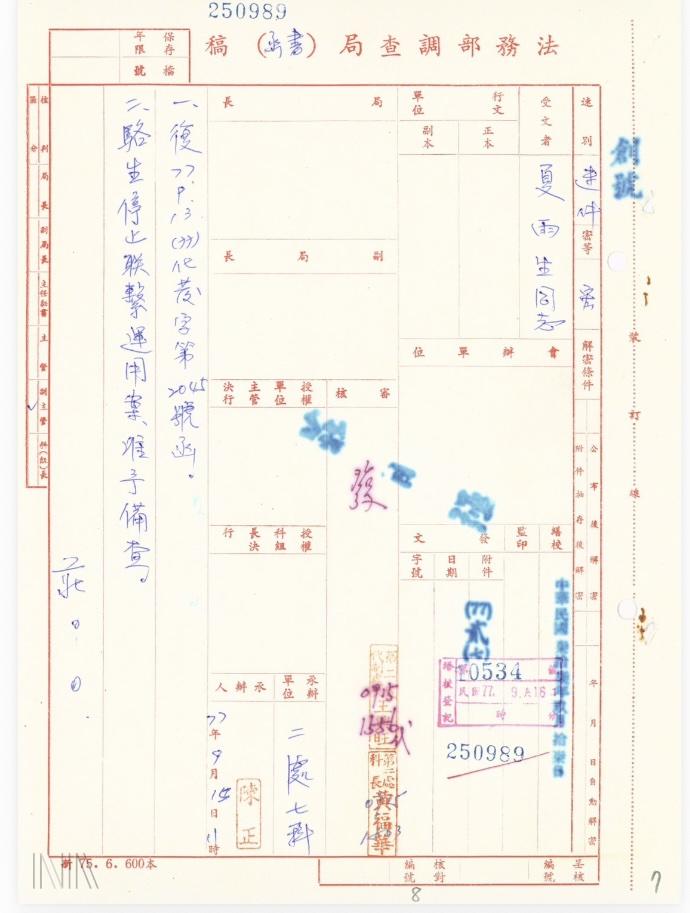 250989
法務部調查局（書函）稿
保存年限
檔號
速別
速件
密等
密
解密條件
公布後解密
附件抽存後解密
年 月 日自動解密
受文者
夏雨生同志
行文單位
正本
副本
會辦單位
繕校
監印
發文
附件
日期
字號
(77)貳(七)
中華民國
10534
繕校登記
民國77. 9.
時
250989
局長
副局長
審核
發
授權單位主管決行
授權科組長決行
承辦單位
二處七科
承辦人
陳正
77年9月15日11時
第二處科長
黃福華
0915
1556
代
一、復77.9.13.(77)化茂字第2045號函。
二、駱生停止聯繫運用案，准予備查。
莊○○
批判區分
局長
副局長
主任秘書
主管
副主管
科(組)長
裝訂線
創號
新75.6.600本
核對編號
呈核編號
8
7